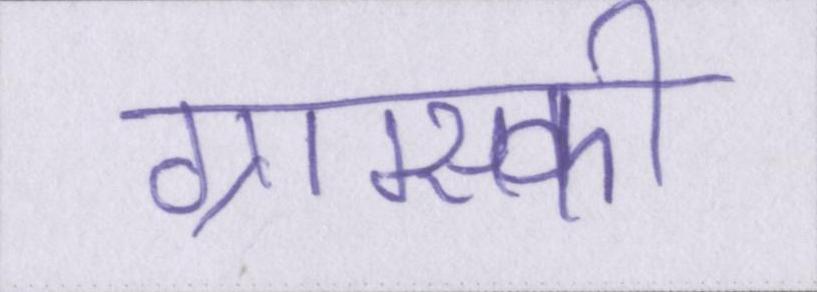 ग्राम्स्की